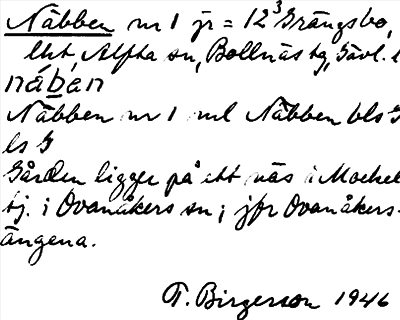 Näbben nr 1 jr = 12³ Grängsbo,
lht, Alfta sn, Bollnäs tg, Gävl. l
nábèn
Näbben nr 1 ml Näbben bls G
ls G
Gården ligger på ett näs i Mockel
tj. i Ovanåkers sn; jfr Ovanåkers-
ängena.
T. Birgerson 1946